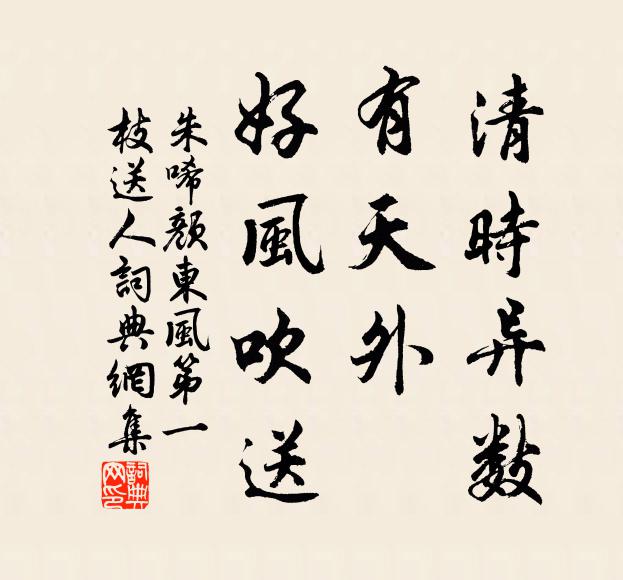 清時异数
有天外
好風吹送
朱唏颜東風第一
枝送人詞典網集
詞典
网印